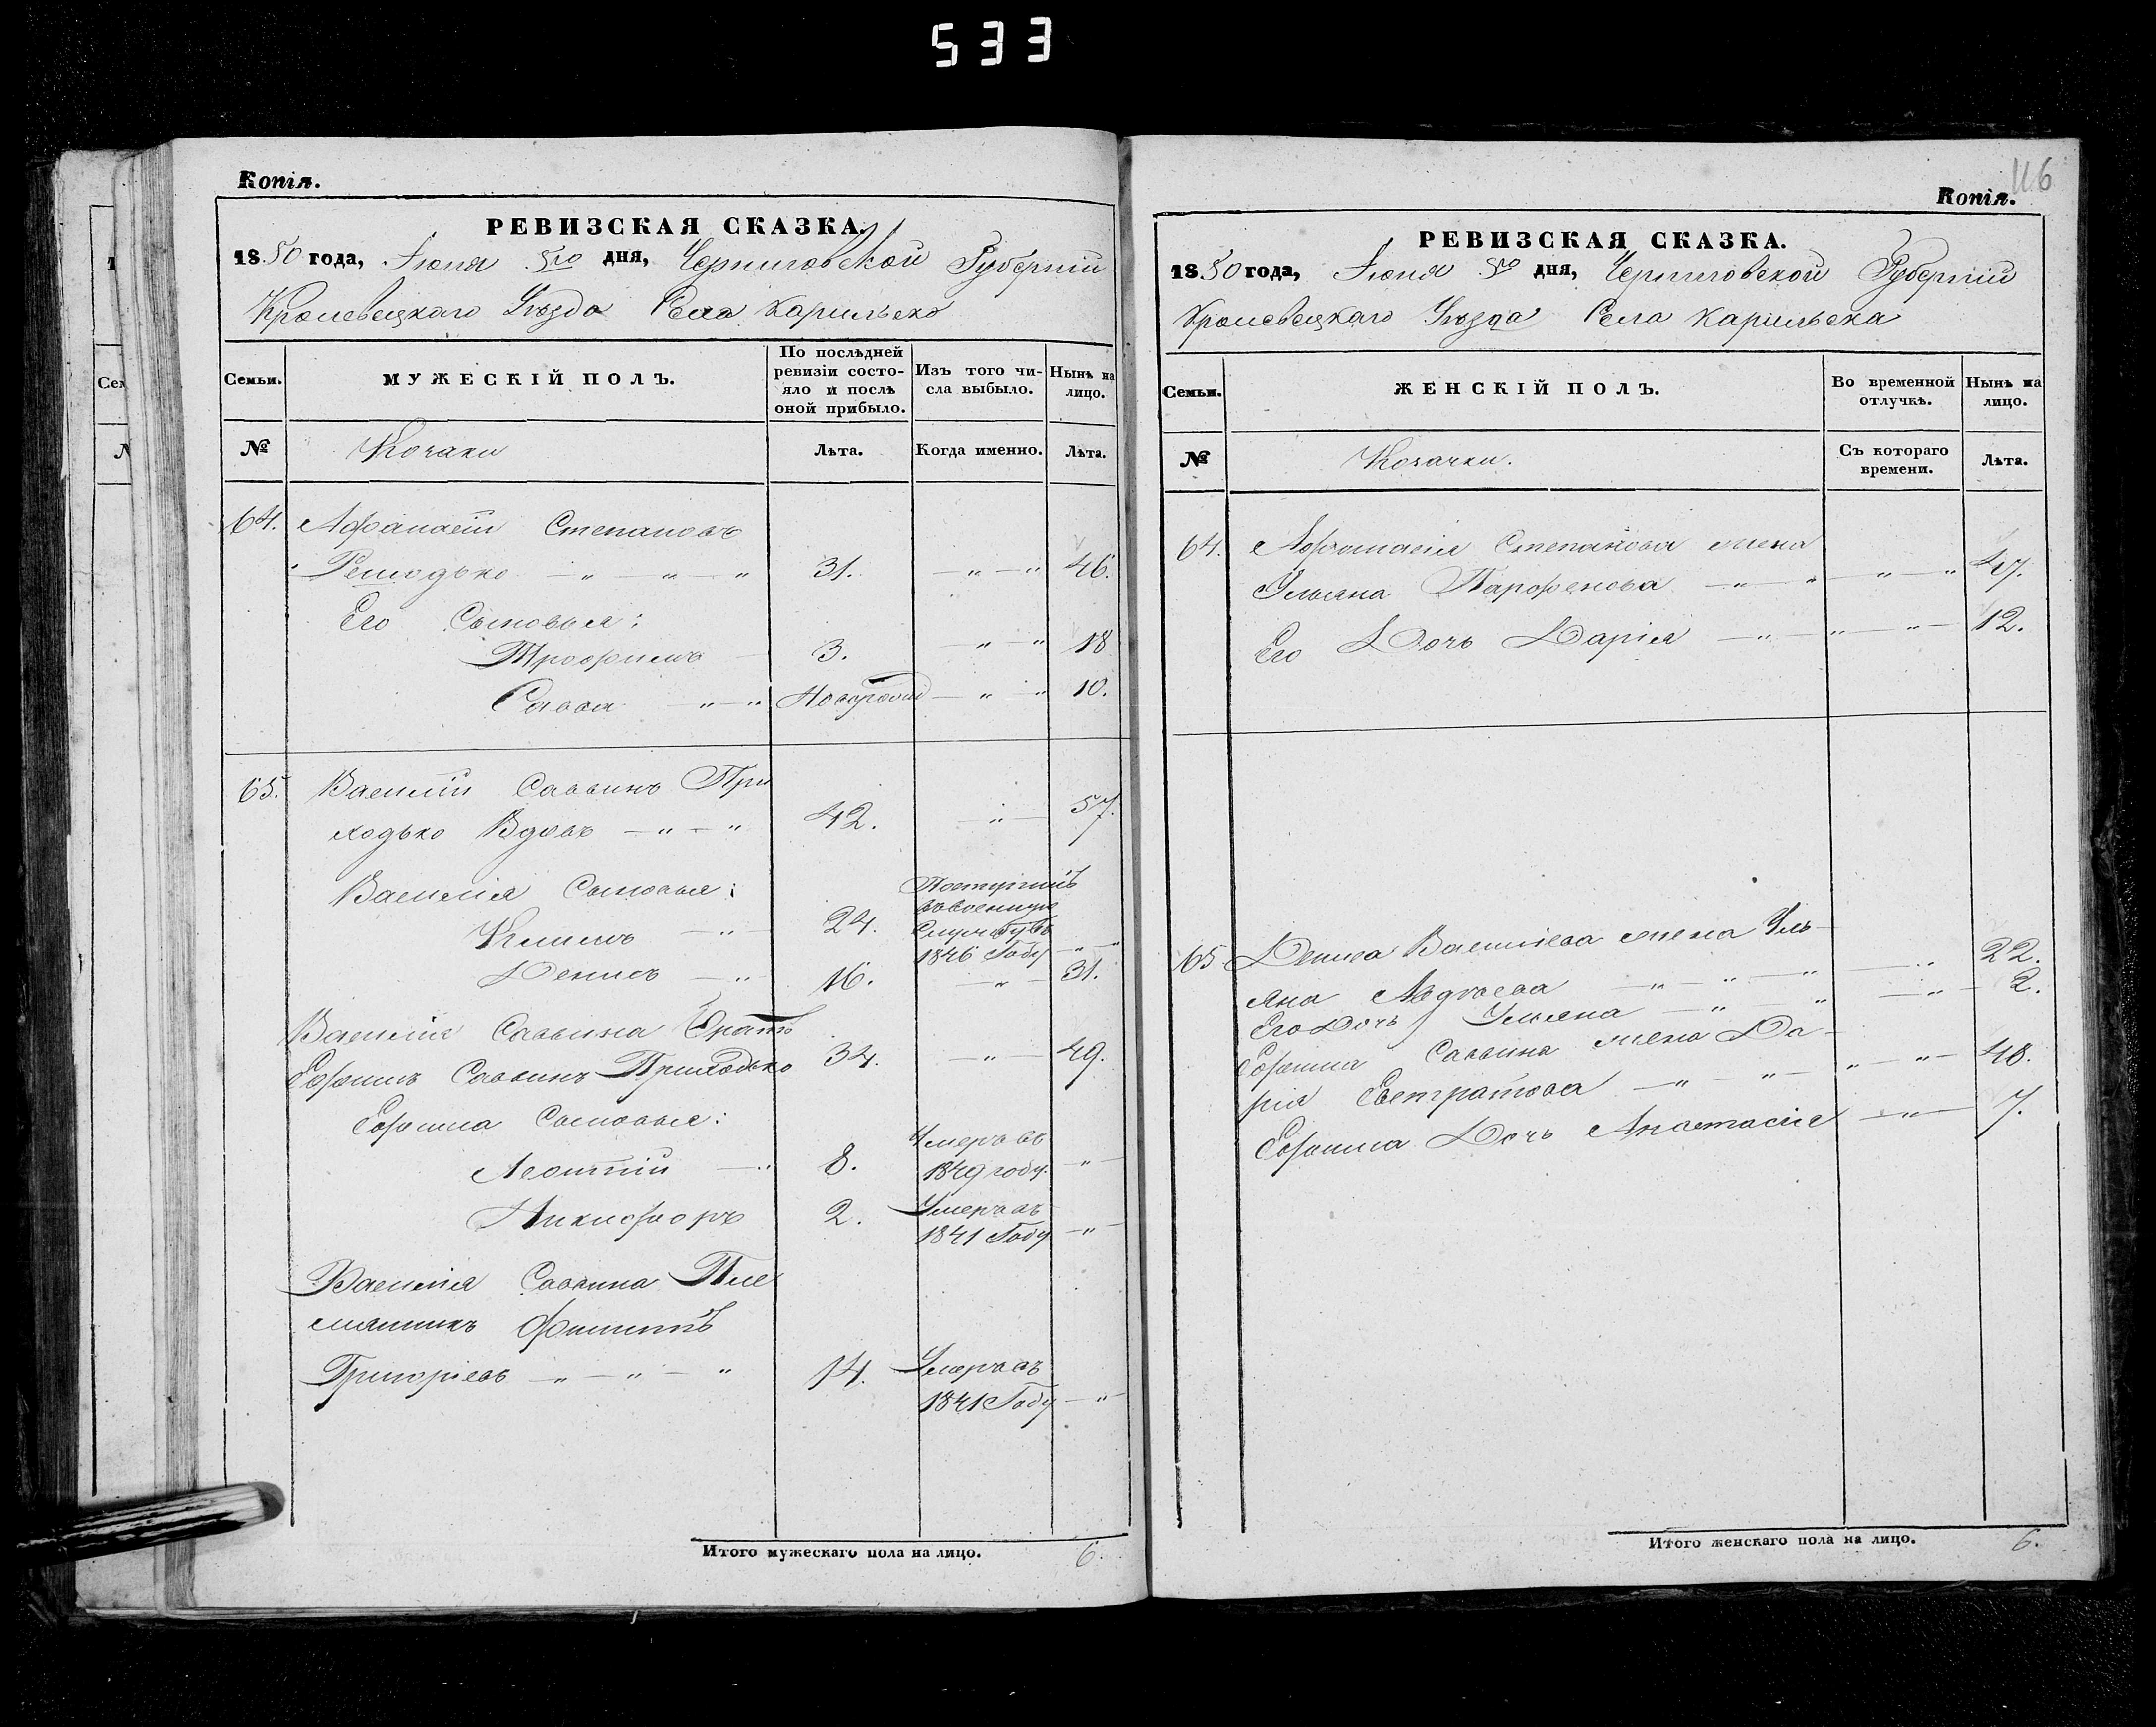 533
Копія.
РЕВИЗСКАЯ СКАЗКА.
1850 года, Іюня 5го дня, Черниговской Губерніи
Кролевецкаго Уѣзда Села Карильска
Семьи.
МУЖЕСКІЙ ПОЛЪ.
По послѣдней ревизіи состо-
яло и послѣ оной прибыло.
Изъ того чи-
сла выбыло.
Нынѣ на
лицо.
№
Козаки
Лѣта.
Когда именно.
Лѣта.
64. Афанасій Степановъ
31. 46.
Его Сыновья:
Трофимъ 3. 18
Савва 10.
65. Василій Саввинъ При
ходько Вдовъ 42. 57.
Василія Сыновья:
Климъ 24. Поступилъ
въ военную
Службу въ
1846 Году
Денисъ 16. 31.
Василія Саввина Братъ
Ефимъ Саввинъ Приходько 34. 49.
Ефима Сыновья:
Леонтій 8. Умеръ въ
1849 году.
Никифоръ 2. Умеръ въ
1841 Году
Василія Саввина Пле
мянникъ Филиппъ
Григорьевъ 14. Умеръ въ
1841 Году
Итого мужескаго пола на лицо. 6.
116
Копія.
РЕВИЗСКАЯ СКАЗКА.
1850 года, Іюня 5го дня, Черниговской Губерніи
Кролевецкаго Уѣзда Села Карильска
Семьи.
ЖЕНСКІЙ ПОЛЪ.
Во временной
отлучкѣ.
Нынѣ на
лицо.
№
Козачки.
Съ котораго
времени.
Лѣта.
64. Афанасія Степанова жена
Ульяна Парфенова 47.
Его Дочь Дарія 12.
65 Дениса Васильева жена Уль-
яна Авдѣева 22.
Его Дочь Ульяна 2.
Ефима Саввина жена Да-
рія Евстратова 48.
Ефима Дочь Анастасія 7.
Итого женскаго пола на лицо. 6.